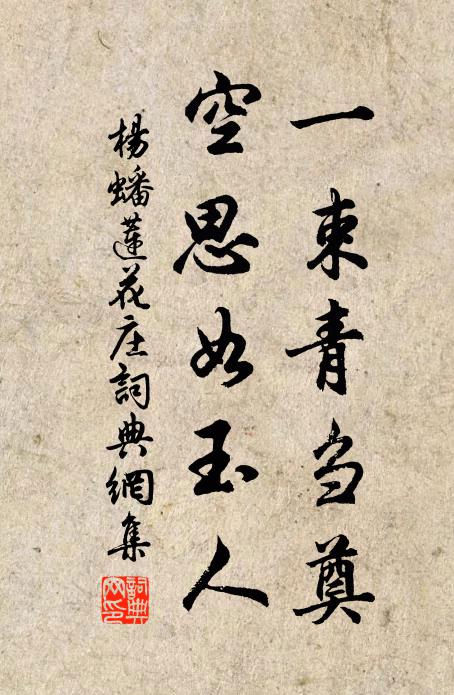 一束青刍奠
空思如玉人
楊蟠蓮花庄詞典網集
詞典網印